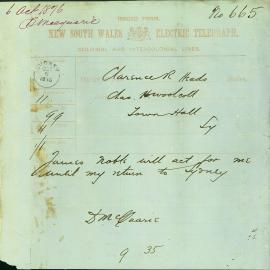 6 Oct 1876
No 665
D Macquarie
ISSUED FORM.
NEW SOUTH WALES ELECTRIC TELEGRAPH.
COLONIAL AND INTERCOLONIAL LINES.
Clarence R Heads
11
Chas. H Woolcott
Town Hall
Sy
James Noble will act for me
until my return to Sydney
D McQuarie
9 35